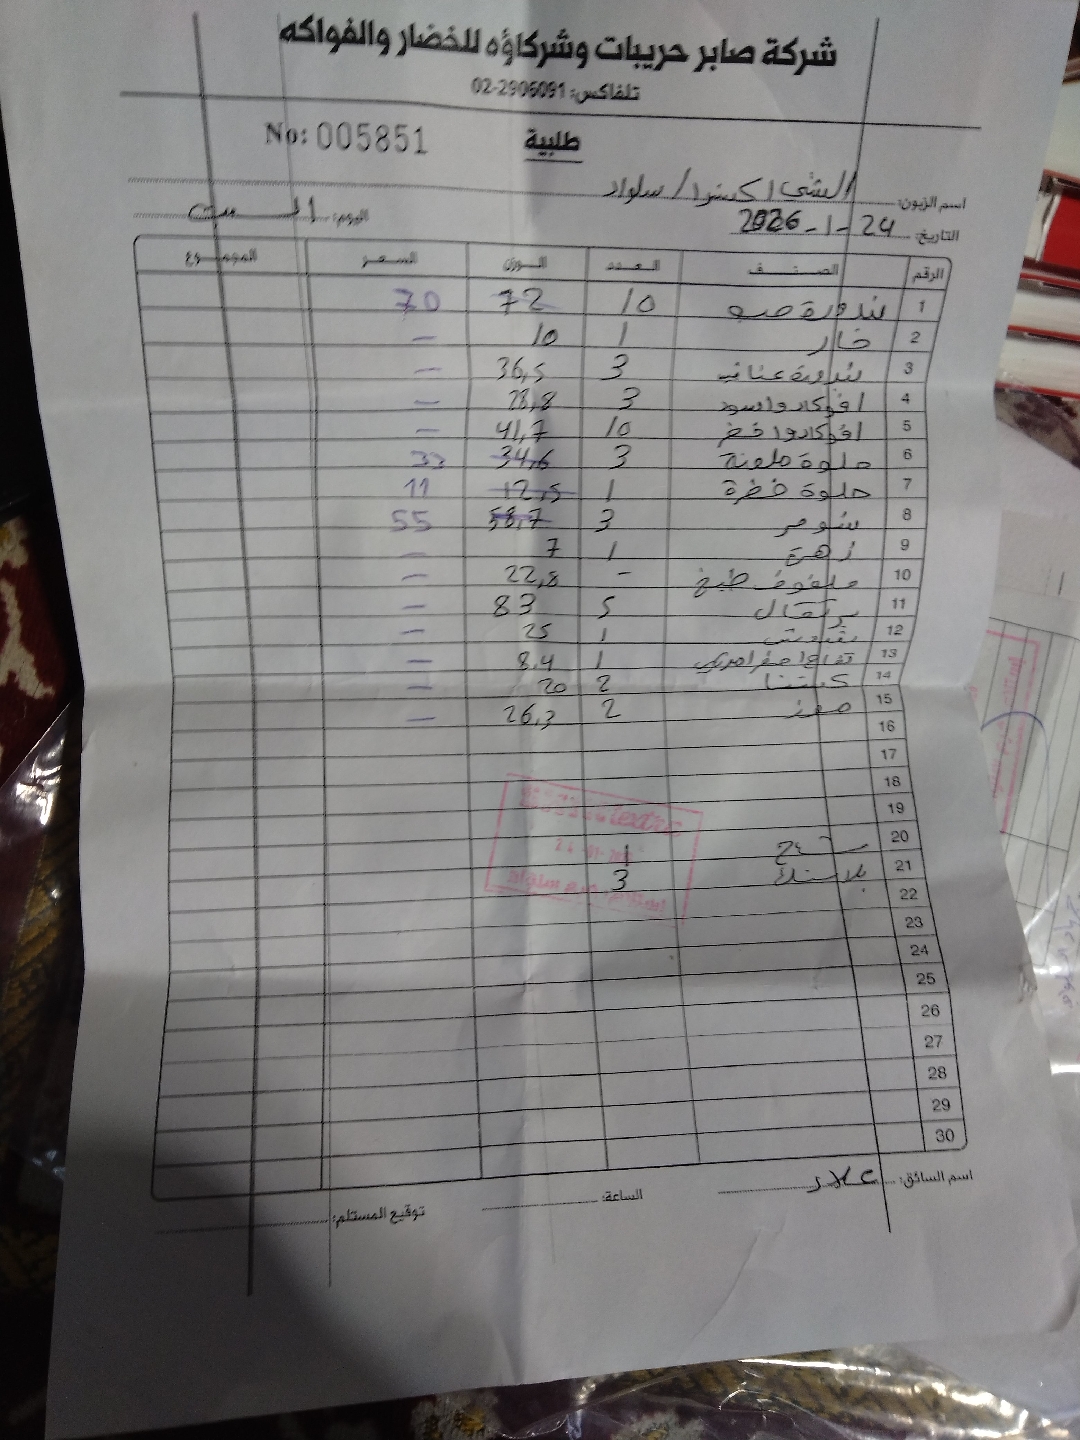 شركة صابر حريبات وشركاؤه للخضار والفواكه
تلفاكس: 02-2906091
No: 005851 طلبية
اسم الزبون: الشني اكسترا / سلواد
التاريخ: 24-1-2026 اليوم: السبت
الرقم الصنف العدد الوزن السعر المجموع
1 بندورة حبه 10 72 70
2 خيار 1 10 —
3 بندورة عناقيد 3 36,5 —
4 افوكادو اسود 3 28,8 —
5 افوكادوا خضر 10 41,7 —
6 حلوة ملونة 3 34,6 33
7 حلوة خضرة 1 12,5 11
8 شومر 3 58,7 55
9 زهرة 1 7 —
10 ملفوف طبخ - 22,8 —
11 برتقال 5 83 —
12 بقدونس 1 25 —
13 تفاح اصفر امريكي 1 8,4 —
14 كستنا 2 20 —
15 موز 2 26,3 —
16
17
18
19
20 1
21 بلاستك 3
22
23
24
25
26
27
28
29
30
extra
24-01-2026
اسم السائق: علاء الساعة: توقيع المستلم: